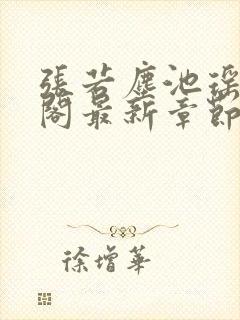 張若塵池瑤
閣最新章節
徐增華